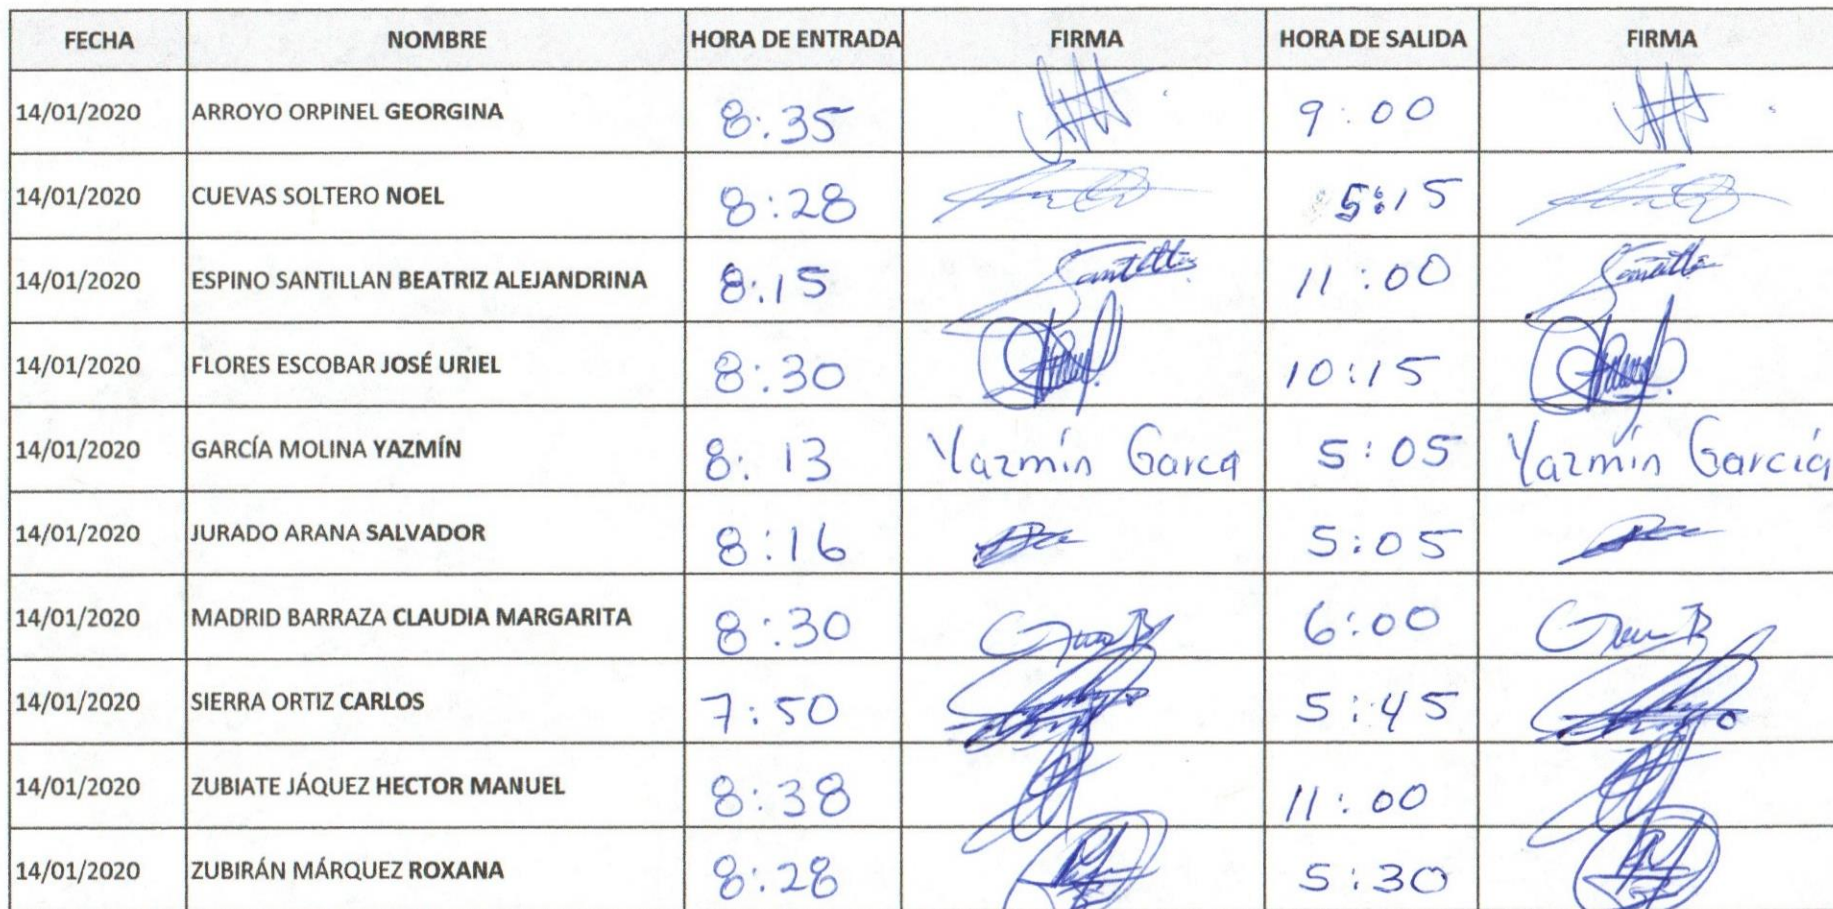 FECHA NOMBRE HORA DE ENTRADA FIRMA HORA DE SALIDA FIRMA
14/01/2020 ARROYO ORPINEL GEORGINA 8:35 9:00
14/01/2020 CUEVAS SOLTERO NOEL 8:28 5:15
14/01/2020 ESPINO SANTILLAN BEATRIZ ALEJANDRINA 8:15 11:00
14/01/2020 FLORES ESCOBAR JOSÉ URIEL 8:30 10:15
14/01/2020 GARCÍA MOLINA YAZMÍN 8:13 Yazmín Garca 5:05 Yazmín García
14/01/2020 JURADO ARANA SALVADOR 8:16 5:05
14/01/2020 MADRID BARRAZA CLAUDIA MARGARITA 8:30 6:00
14/01/2020 SIERRA ORTIZ CARLOS 7:50 5:45
14/01/2020 ZUBIATE JÁQUEZ HECTOR MANUEL 8:38 11:00
14/01/2020 ZUBIRÁN MÁRQUEZ ROXANA 8:28 5:30